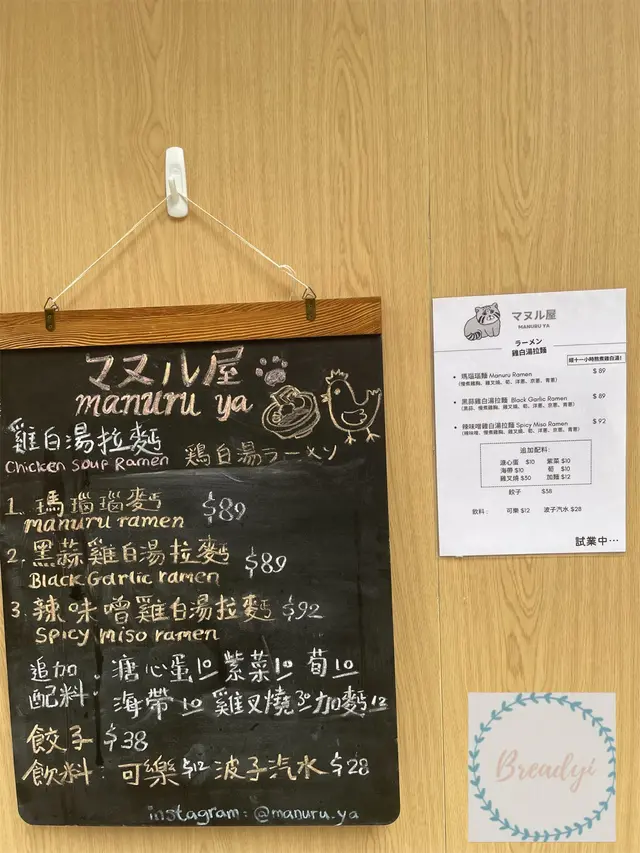 マヌル屋
manuru ya
雞白湯拉麵
Chicken Soup Ramen 鶏白湯ラーメン
1. 瑪瑙瑙麵 $89
manuru ramen
2. 黑蒜雞白湯拉麵 $89
Black Garlic ramen
3. 辣味噌雞白湯拉麵 $92
Spicy miso ramen
追加 : 溏心蛋10 紫菜10 荀10
配料 海帶10 雞叉燒30 加麵12
餃子 $38
飲料 : 可樂$12 波子汽水 $28
instagram : @manuru.ya
マヌル屋
MANURU YA
ラーメン
雞白湯拉麵
經十一小時熬煮雞白湯!
• 瑪瑙瑙麵 Manuru Ramen $ 89
(慢煮雞胸、雞叉燒、荀、洋蔥、京蔥、青蔥)
• 黑蒜雞白湯拉麵 Black Garlic Ramen $ 89
(黑蒜、慢煮雞胸、雞叉燒、荀、洋蔥、京蔥、青蔥)
• 辣味噌雞白湯拉麵 Spicy Miso Ramen $ 92
(辣味噌、慢煮雞胸、雞叉燒、荀、洋蔥、京蔥、青蔥)
追加配料:
溏心蛋 $10 紫菜 $10
海帶 $10 荀 $10
雞叉燒 $30 加麵 $12
餃子 $38
飲料: 可樂 $12 波子汽水 $28
試業中…
Breadyi